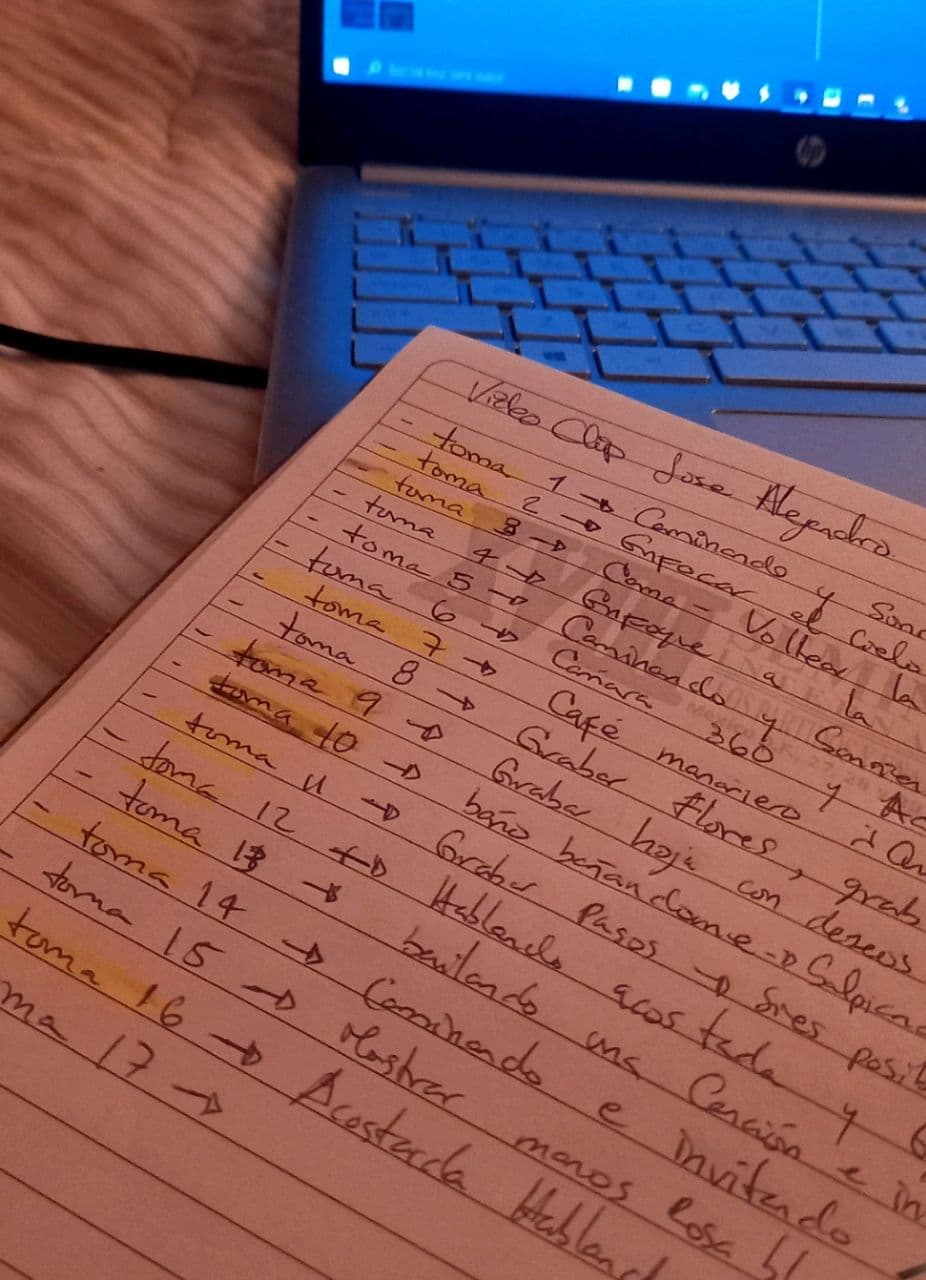 hp
Video Clip Jose Alejandro.
- toma 1 → Caminando y
- toma 2 → Enfocar el Cielo
- toma 3 → Cama - Voltear la
- toma 4 → Enfoque a la
- toma 5 → Caminando y
- toma 6 → Camara 360 y
- toma 7 → Café mañanero
- toma 8 → Grabar flores, grab
- toma 9 → Grabar hoja con deseos
- toma 10 → baño bañandome →
- toma 11 → Grabar Pasos →
- toma 12 → Hablando acostada y
- toma 13 → bailando una Canción e in
- toma 14 → Caminando e invitando
- toma 15 → Mostrar manos Rosa
toma 16 → Acostada Habland
ma 17 →
XVIII